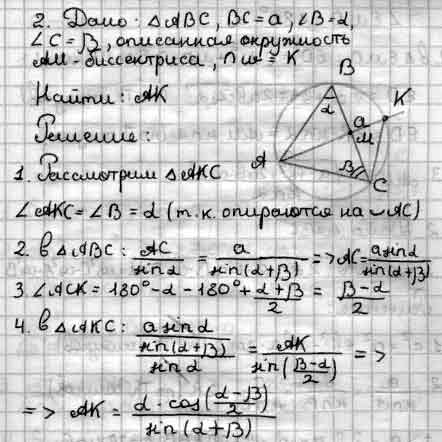 2. Дано: △ABC, BC=a, ∠B=α,
∠C=β, описанная окружность
AM - биссектриса, ∩ω = K
Найти: AK
Решение:
B
K
α
a
M
A
β
C
1. Рассмотрим △AKC
∠AKC=∠B=α (т.к. опираются на ◡AC)
2. В △ABC: AC/sinα = a/sin(α+β) => AC = a sinα/sin(α+β)
3. ∠ACK = 180°-α-180°+(α+β)/2 = (β-α)/2
4. В △AKC: (a sinα/sin(α+β))/sinα = AK/sin((β-α)/2) =>
=> AK = α·cos((α-β)/2)/sin(α+β)